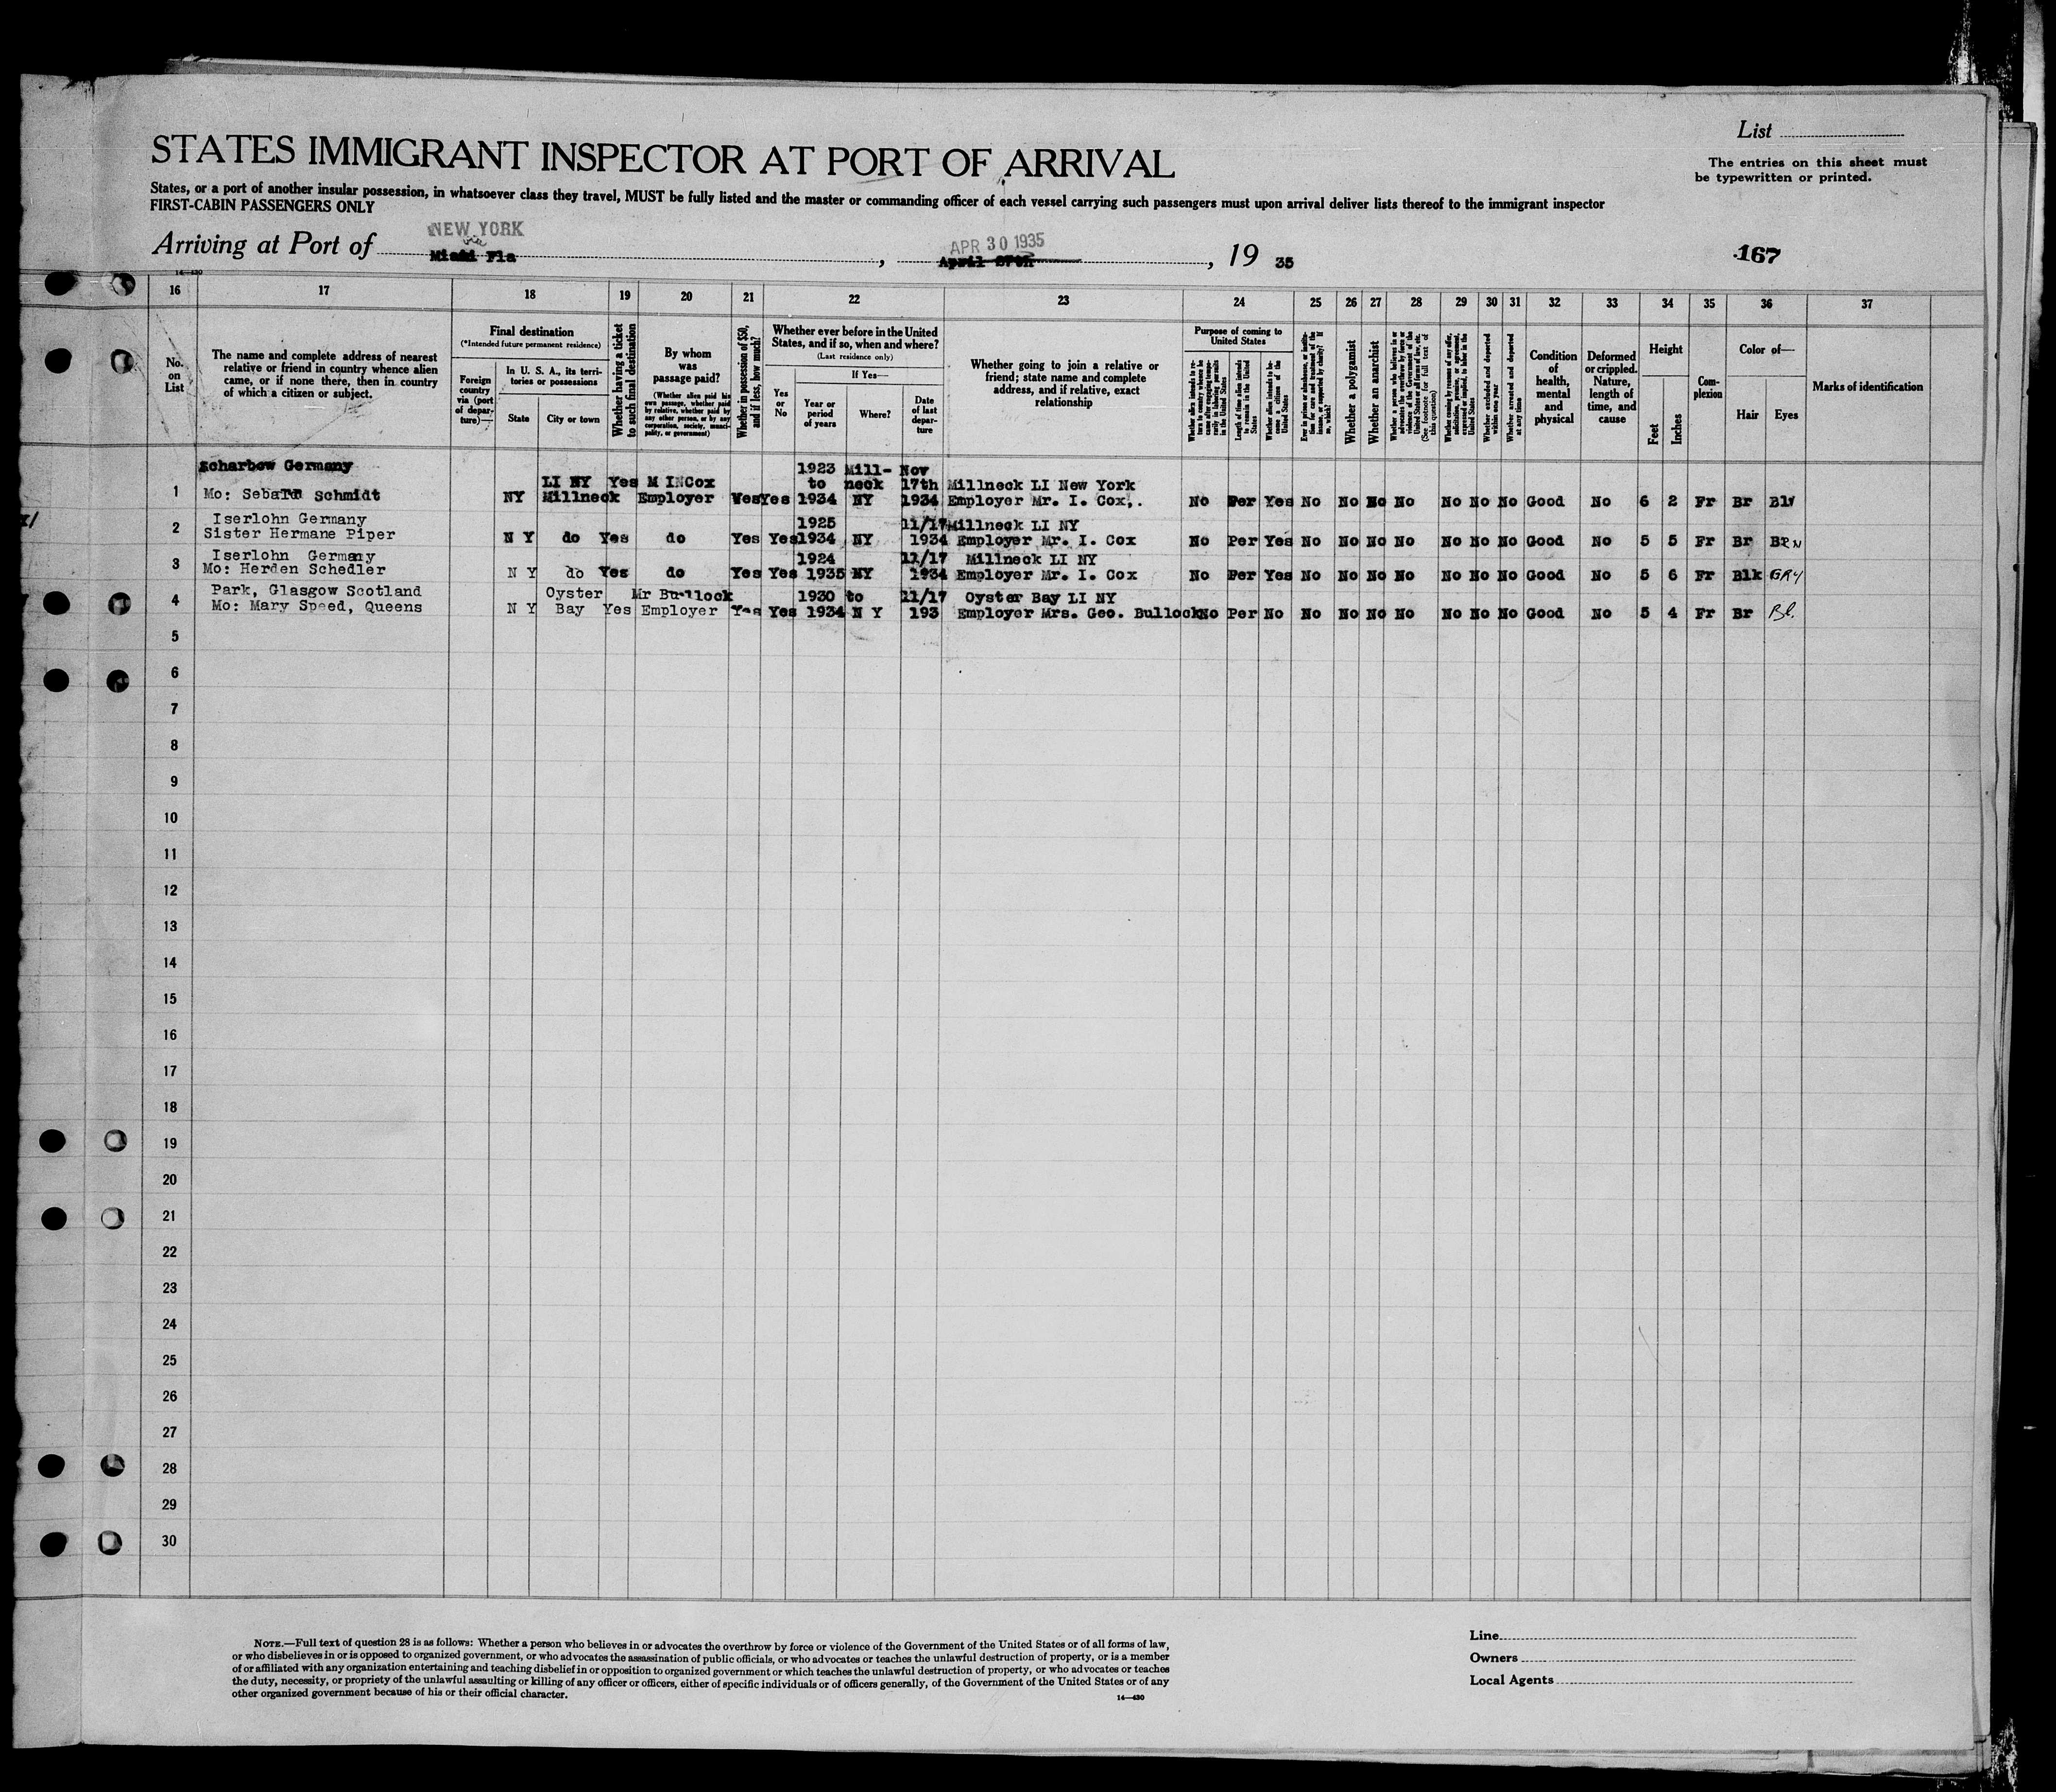 List
STATES IMMIGRANT INSPECTOR AT PORT OF ARRIVAL
The entries on this sheet must
be typewritten or printed.
States, or a port of another insular possession, in whatsoever class they travel, MUST be fully listed and the master or commanding officer of each vessel carrying such passengers must upon arrival deliver lists thereof to the immigrant inspector
FIRST-CABIN PASSENGERS ONLY
NEW YORK
via
Arriving at Port of Miami Fla, APR 30 1935 April 27th, 19 35
167
14—430
16 17 18 19 20 21 22 23 24 25 26 27 28 29 30 31 32 33 34 35 36 37
No. on List
The name and complete address of nearest relative or friend in country whence alien came, or if none there, then in country of which a citizen or subject.
Final destination
(*Intended future permanent residence)
Foreign country via (port of departure)—
In U. S. A., its territories or possessions
State
City or town
Whether having a ticket to such final destination
By whom was passage paid?
(Whether alien paid his own passage, whether paid by relative, whether paid by any other person, or by any corporation, society, municipality, or government)
Whether in possession of $50, and if less, how much?
Whether ever before in the United States, and if so, when and where?
(Last residence only)
Yes or No
If Yes—
Year or period of years
Where?
Date of last departure
Whether going to join a relative or friend; state name and complete address, and if relative, exact relationship
Purpose of coming to United States
Whether alien intends to return to country whence he came after engaging temporarily in laboring pursuits in the United States
Length of time alien intends to remain in the United States
Whether alien intends to become a citizen of the United States
Ever in prison or almshouse, or institution for care and treatment of the insane, or supported by charity? If so, which?
Whether a polygamist
Whether an anarchist
Whether a person who believes in or advocates the overthrow by force or violence of the Government of the United States or all forms of law, etc. (See footnote for full text of this question)
Whether coming by reason of any offer, solicitation, promise, or agreement, expressed or implied, to labor in the United States
Whether excluded and deported within one year
Whether arrested and deported at any time
Condition of health, mental and physical
Deformed or crippled. Nature, length of time, and cause
Height
Feet
Inches
Complexion
Color of—
Hair
Eyes
Marks of identification
Scharbow Germany 1923 Mill- Nov
LI NY Yes M I Cox to neck 17th Millneck LI New York
1 Mo: Schmidt NY Millneck Employer Yes Yes 1934 NY 1934 Employer Mr. I. Cox,. No Per Yes No No No No No No No Good No 6 2 Fr Br Blu
Iserlohn Germany 1925 11/17 Millneck LI NY
2 Sister Hermane Piper N Y do Yes do Yes Yes 1934 NY 1934 Employer Mr. I. Cox No Per Yes No No No No No No No Good No 5 5 Fr Br BRN
Iserlohn Germany 1924 11/17 Millneck LI NY
3 Mo: Herden Schedler N Y do Yes do Yes Yes 1935 NY 1934 Employer Mr. I. Cox No Per Yes No No No No No No No Good No 5 6 Fr Blk GRY
Park, Glasgow Scotland Oyster Mr Bullock 1930 to 11/17 Oyster Bay LI NY
4 Mo: Mary Speed, Queens N Y Bay Yes Employer Yes Yes 1934 N Y 193 Employer Mrs. Geo. Bullock No Per No No No No No No No No Good No 5 4 Fr Br Bl.
5
6
7
8
9
10
11
12
13
14
15
16
17
18
19
20
21
22
23
24
25
26
27
28
29
30
NOTE.—Full text of question 28 is as follows: Whether a person who believes in or advocates the overthrow by force or violence of the Government of the United States or of all forms of law,
or who disbelieves in or is opposed to organized government, or who advocates the assassination of public officials, or who advocates or teaches the unlawful destruction of property, or is a member
of or affiliated with any organization entertaining and teaching disbelief in or opposition to organized government or which teaches the unlawful destruction of property, or who advocates or teaches
the duty, necessity, or propriety of the unlawful assaulting or killing of any officer or officers, either of specific individuals or of officers generally, of the Government of the United States or of any
other organized government because of his or their official character.
14—430
Line
Owners
Local Agents